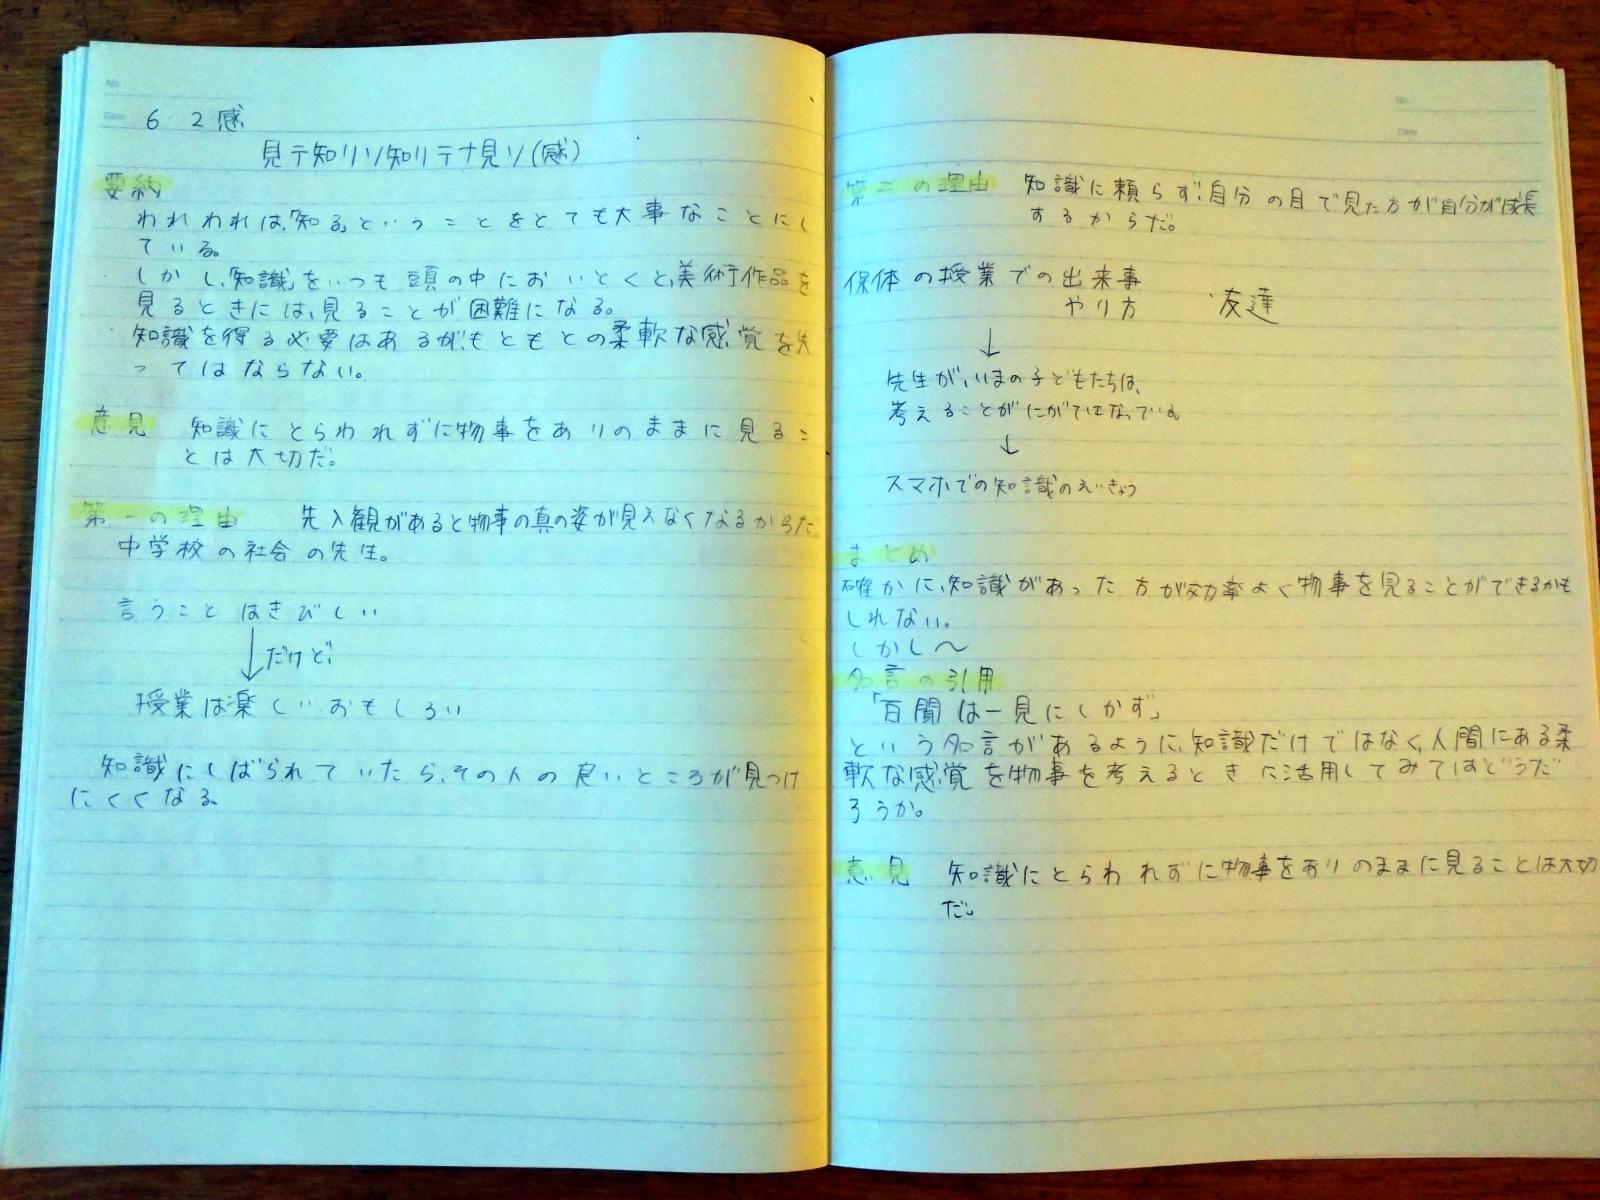 No
Date 6.2感
見テ知リソ知リテナ見ソ(感)
要約
われわれは、「知る」ということをとても大事なことにし
ている。
しかし、「知識」をいつも頭の中においとくと、美術作品を
見るときには、見ることが困難になる。
知識を得る必要はあるが、もともとの柔軟な感覚を失
ってはならない。
意見 知識にとらわれずに物事をありのままに見るこ
とは大切だ。
第一の理由 先入観があると物事の真の姿が見えなくなるからだ。
中学校の社会の先生。
言うことはきびしい
だけど、
授業は楽しいおもしろい
知識にしばられていたら、その人の良いところが見つけ
にくくなる。
No.
Date
第二の理由 知識に頼らず、自分の目で見た方が自分が成長
するからだ。
保体の授業での出来事
やり方 友達
先生が、いまの子どもたちは、
考えることがにがてになっている。
スマホでの知識のえいきょう
まとめ
確かに、知識があった方が効率よく物事を見ることができるかも
しれない。
しかし〜
名言の引用
「百聞は一見にしかず」
という名言があるように、知識だけではなく、人間にある柔
軟な感覚を物事を考えるときに活用してみてはどうだ
ろうか。
意見 知識にとらわれずに物事をありのままに見ることは大切
だ。